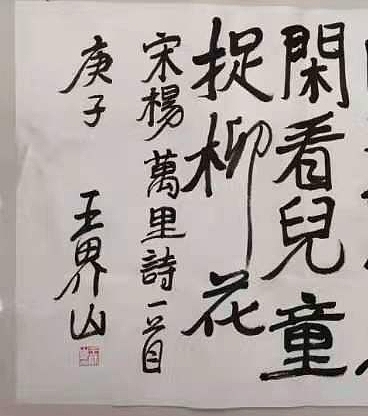 閑看兒童
捉柳花
宋楊萬里詩一首
庚子
王界山